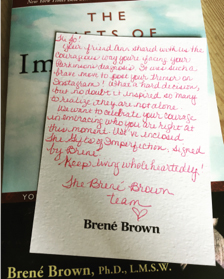 THE
Hi Jo!
Your friend Ann shared with us the
courageous way you're facing your
Parkinsons diagnosis. It was such a
brave move to post your tremor on
Instagram! It was a hard decision,
but no doubt it inspired so many
to realize they are not alone.
We want to celebrate your courage
in embracing who you are right at
this moment. We've enclosed
The Gifts of Imperfection, signed
by Brené.
Keep living wholeheartedly!
The Brené Brown
team
Brené Brown
Brené Brown, Ph.D., L.M.S.W.